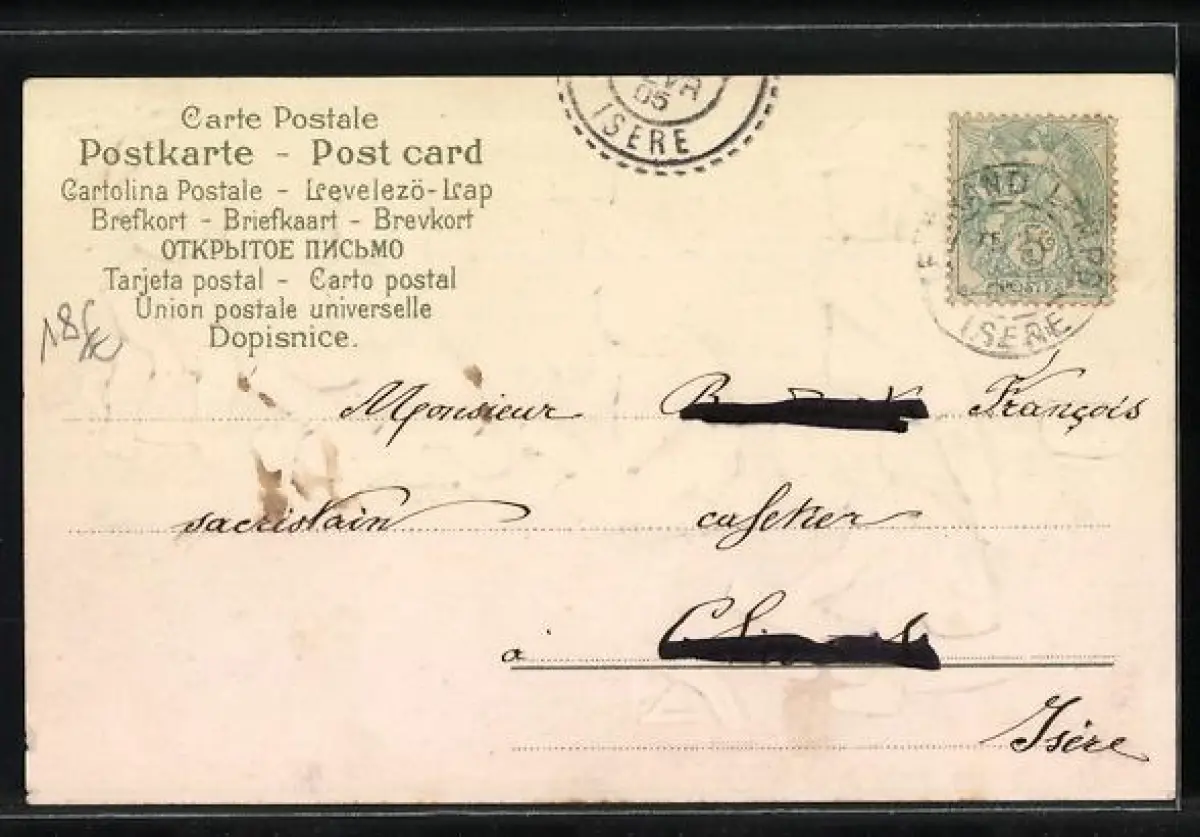 Carte Postale
Postkarte - Post card
Cartolina Postale - Levelezö-Lap
Brefkort - Briefkaart - Brevkort
ОТКРЫТОЕ ПИСЬМО
Tarjeta postal - Carto postal
Union postale universelle
Dopisnice.
05
ISERE
GRAND LEMPS
5c
POSTES
ISERE
Monsieur François
sacristain
à
Isére